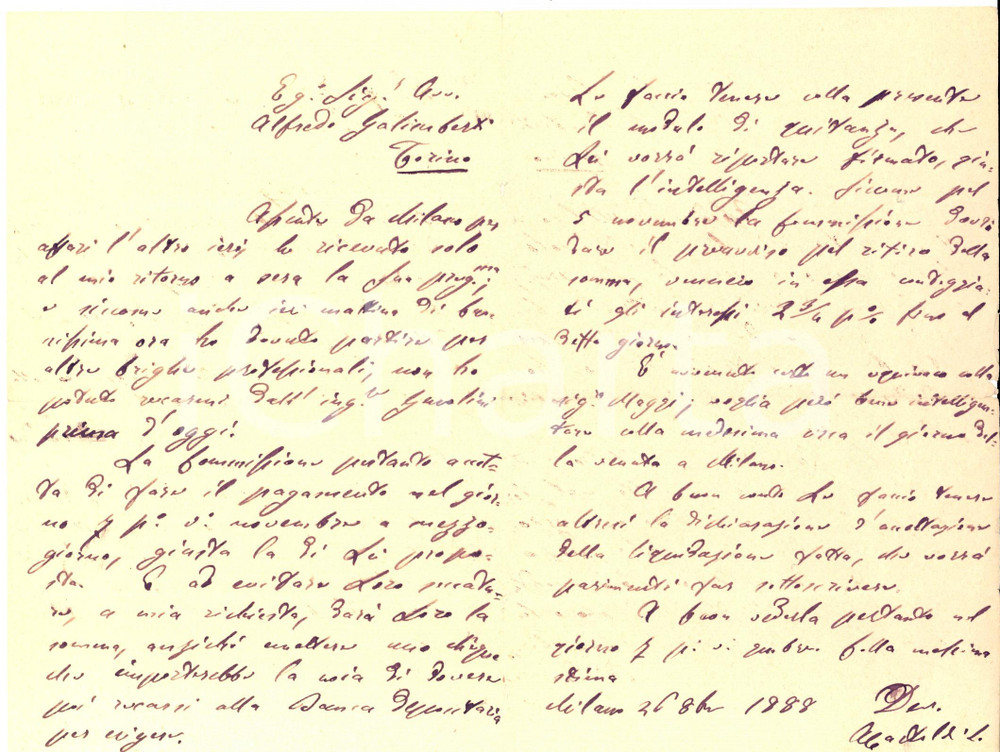 Eg.º Sig.r Avv.
Alfredo Galimberti
Torino
Assente da Milano per
affari l'altro ieri ho ricevuto solo
al mio ritorno a sera la Sua preg.ma,
e siccome anche ieri mattina di buo-
nissima ora ho dovuto partire per
altre brighe professionali, non ho
potuto recarmi dall'ing.re
prima d'oggi.
La Commissione pertanto accet-
ta di fare il pagamento nel gior-
no 7 p.º v.º novembre a mezzo-
giorno, giusta la di Lei propo-
sta. E ad evitare Loro seccatu-
re, a mia richiesta, darà Loro la
somma, anzichè emettere uno chèque
che importerebbe la noia di dovere
poi recarsi alla Banca depositaria
per esigere.
Le faccio tenere colla presente
il modulo di quitanza, che
Lei vorrà riportare firmato, giu-
sta l'intelligenza. Siccome pel
5 novembre la Commissione dovrà
dare il preavviso pel ritiro della
somma, verranno in essa conteggia-
ti gli interessi 2 3/4 p% fino al
detto giorno.
È avvenuto un equivoco colla
sig.ra Maggi; voglia però bene intelligen-
tare colla medesima circa il giorno del-
la venuta a Milano.
A buon conto Le faccio tenere
altresì la dichiarazione d'accettazione
della liquidazione fatta, che vorrà
parimenti far sottoscrivere.
A buon vederla pertanto nel
giorno 7 p. v. 9mbre. Colla massima
stima
Milano 26 8bre 1888
Dev.